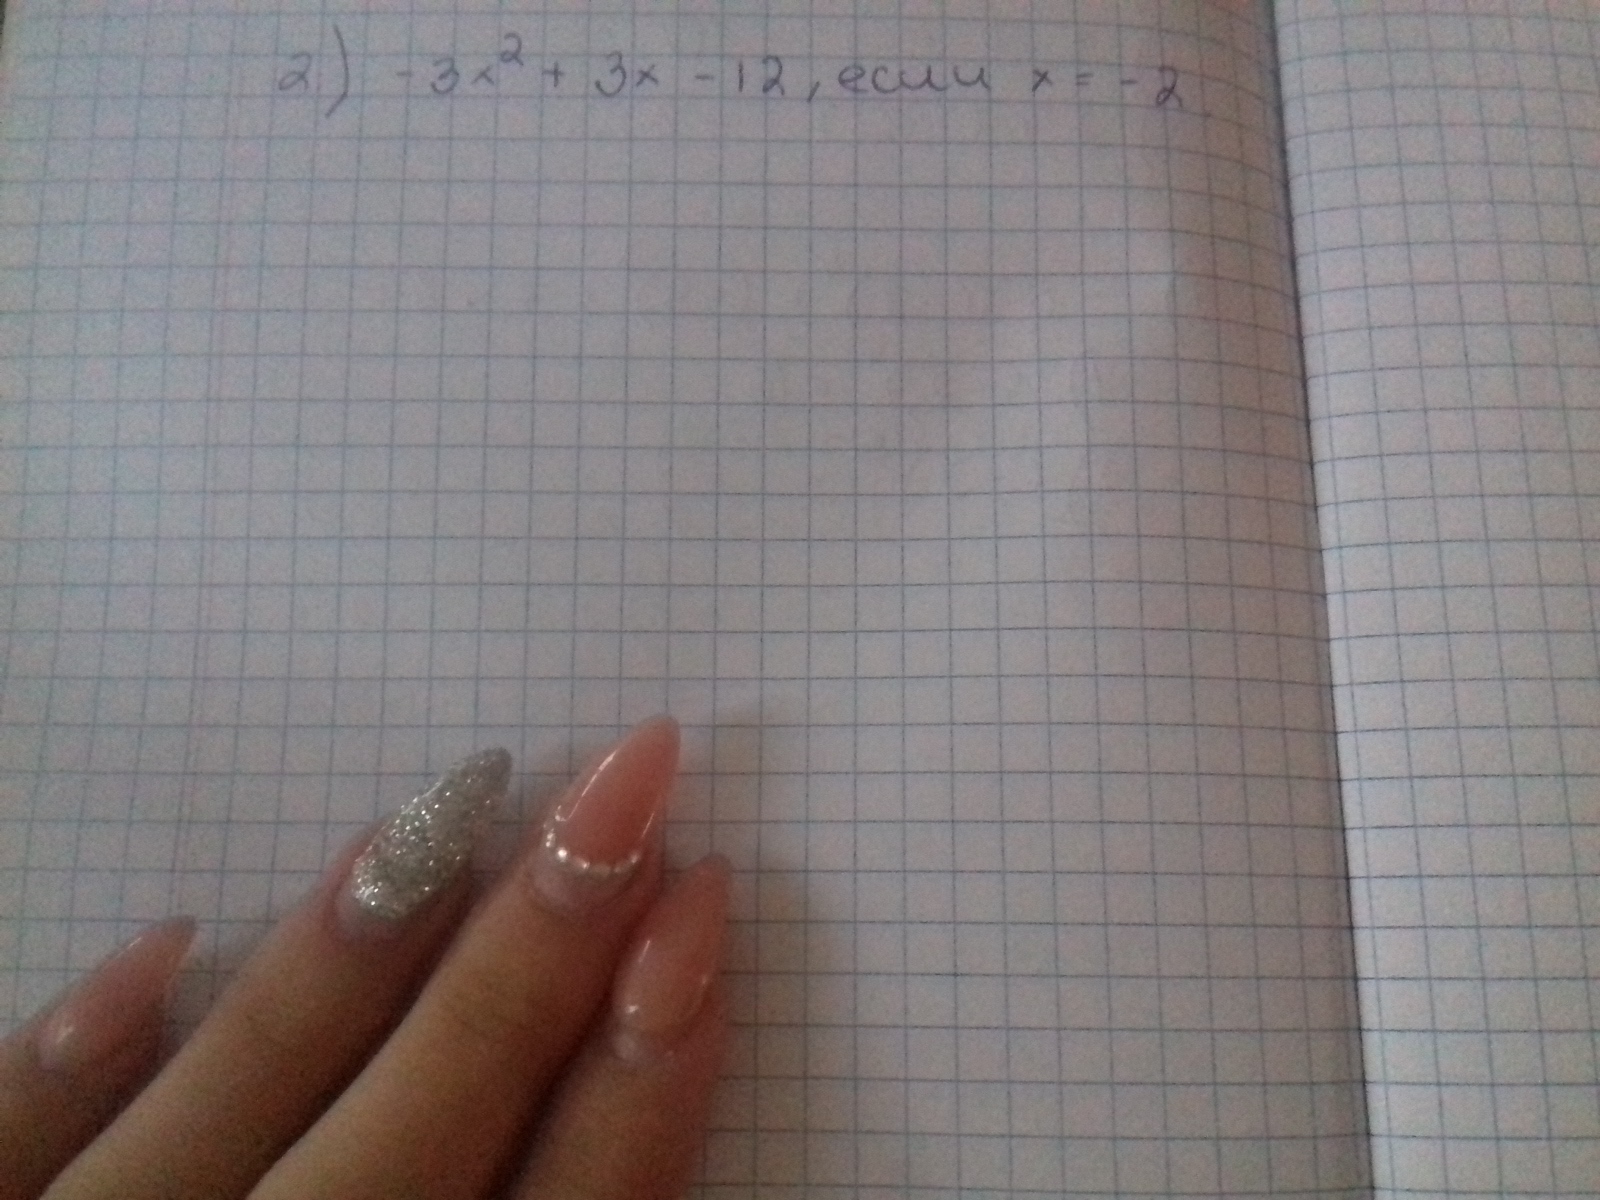 2) -3x² + 3x - 12, если x = -2